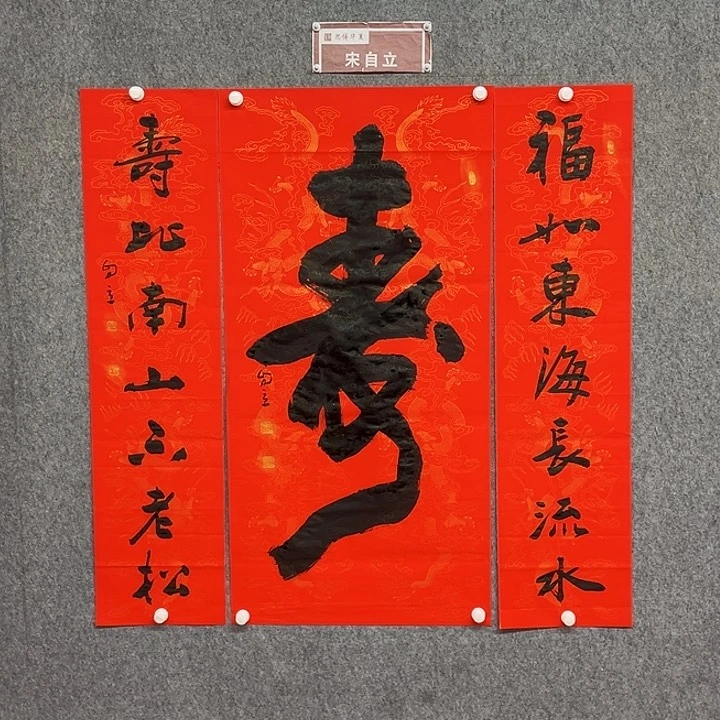 宋自立
福如東海長流水
壽
壽比南山不老松
自立
自立